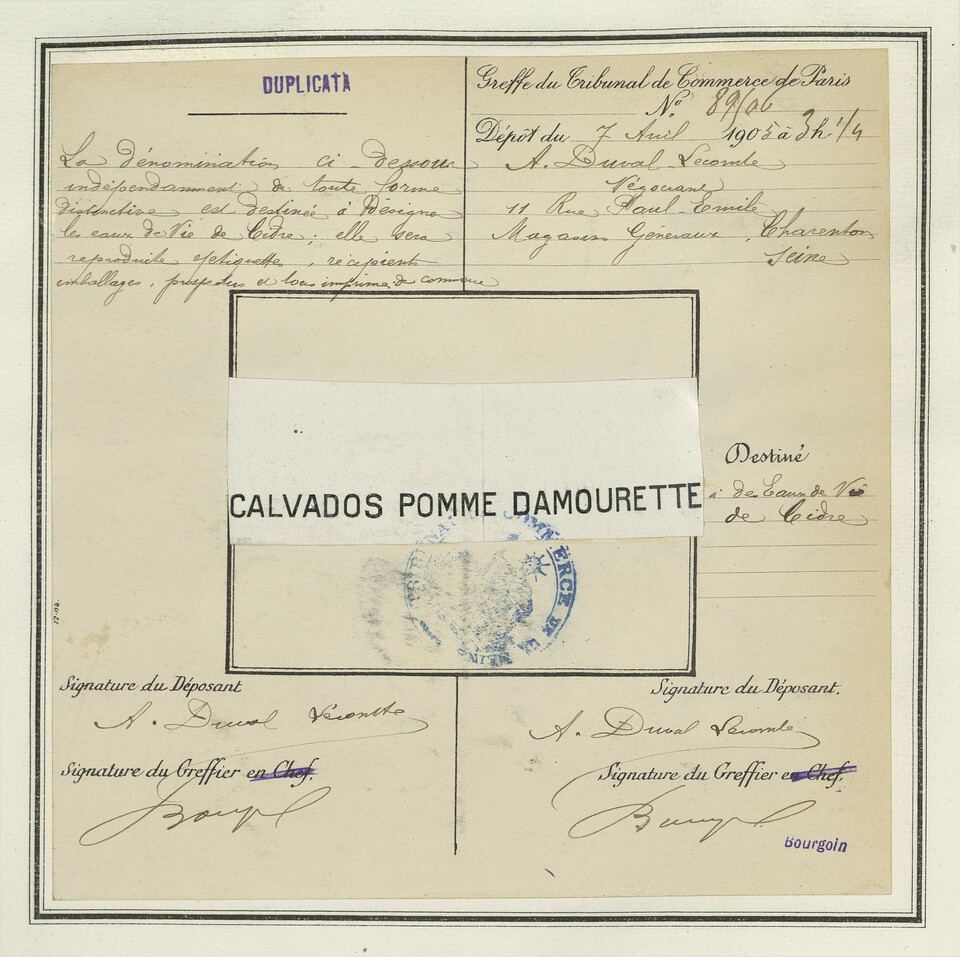 DUPLICATA
La dénomination ci-dessous
indépendamment de toute forme
distinctive est destinée à désigner
les eaux de Vie de Cidre ; elle sera
reproduite étiquettes, récipients
emballages, prospectus et tous imprimés de commerce
Greffe du Tribunal de Commerce de Paris
No. 89706
Dépôt du 7 Avril 1905 à 3h 1/4
A. Duval-Lecomte
Négociant
11 Rue Paul-Emile
Magasins Généraux, Charenton
Seine
CALVADOS POMME DAMOURETTE
Destiné
à des Eaux de Vie
de Cidre
COMMERCE DE LA
SEINE
12-04.
Signature du Déposant
A. Duval Lecomte
Signature du Greffier en Chef.
Signature du Déposant.
A. Duval Lecomte
Signature du Greffier en Chef.
Bourgoin